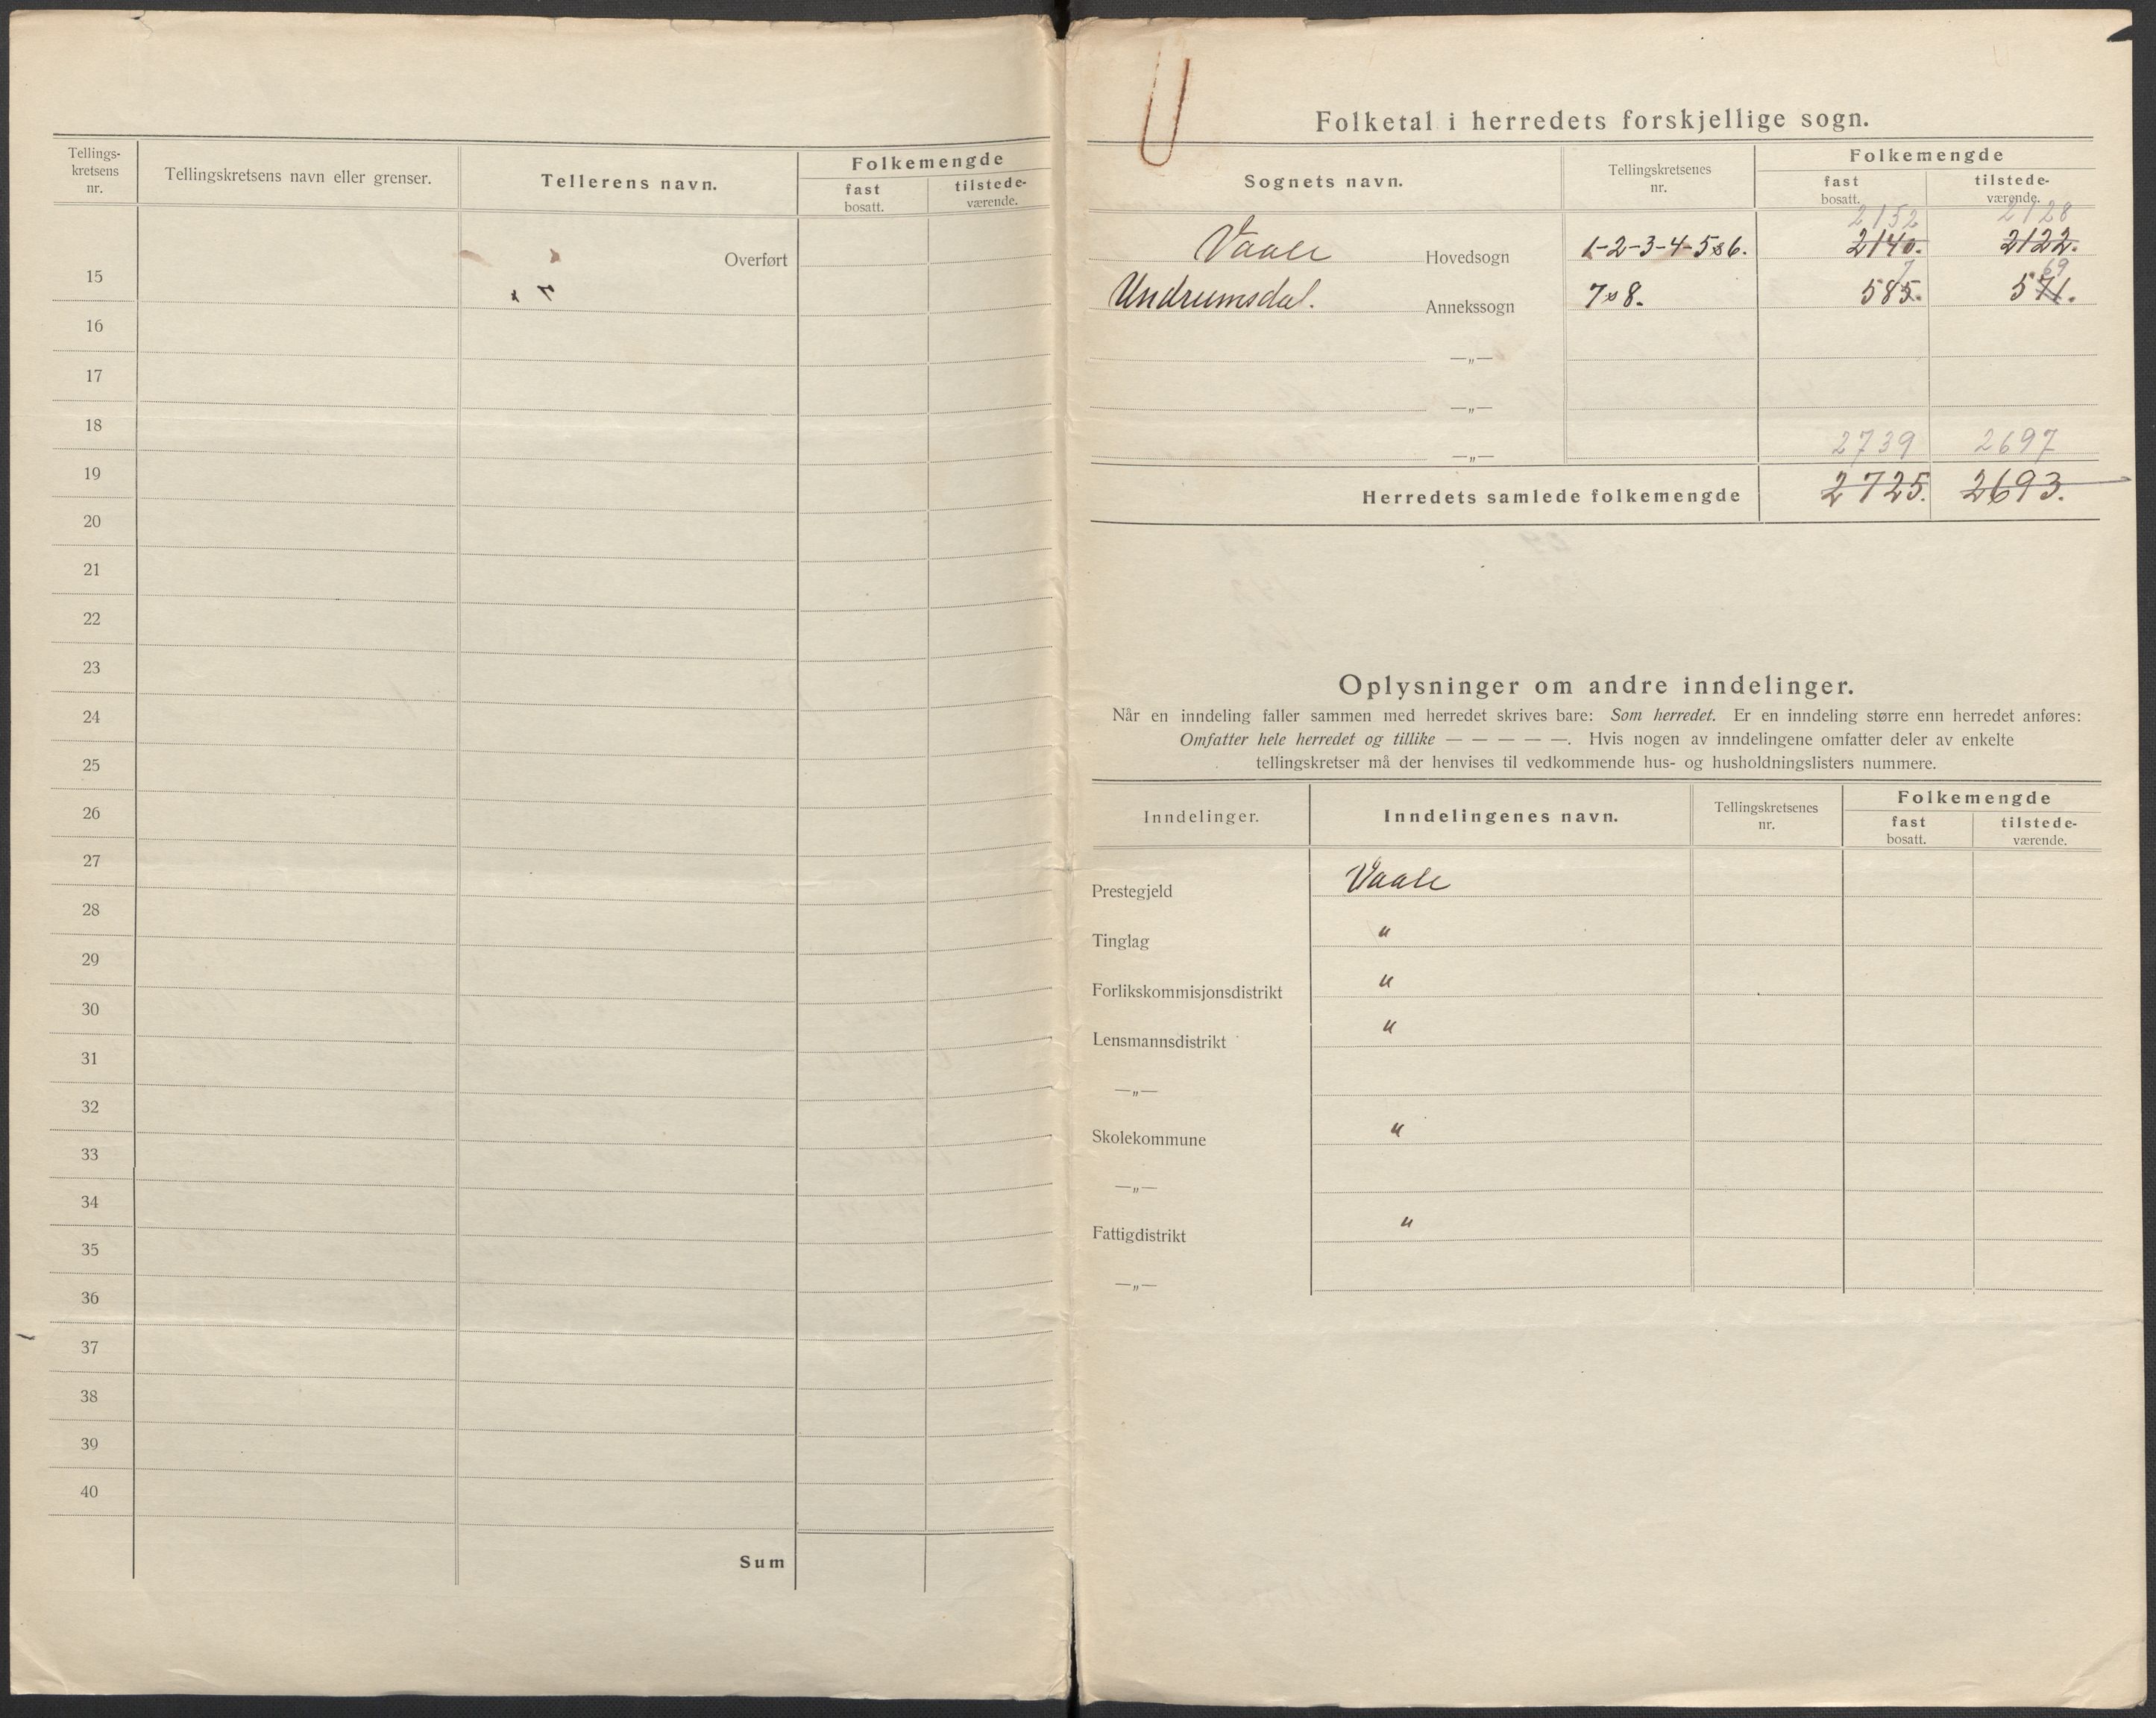 Tellings-
kretsens
nr.
Tellingskretsens navn eller grenser.
Tellerens navn.
Folkemengde
fast
bosatt.
tilstede-
værende.
Overført
15
16
17
18
19
20
21
22
23
24
25
26
27
28
29
30
31
32
33
34
35
36
37
38
39
40
Sum
Folketal i herredets forskjellige sogn.
Sognets navn.
Tellingskretsenes
nr.
Folkemengde
fast
bosatt.
tilstede-
værende.
2152 2128
Vaale Hovedsogn 1-2-3-4-5&6. 2140. 2122.
7 69
Undrumsdal. Annekssogn 7&8. 585. 571.
—„—
—„—
—„— 2739 2697
Herredets samlede folkemengde 2725. 2693.
Oplysninger om andre inndelinger.
Når en inndeling faller sammen med herredet skrives bare: Som herredet. Er en inndeling større enn herredet anføres:
Omfatter hele herredet og tillike — — — — —. Hvis nogen av inndelingene omfatter deler av enkelte
tellingskretser må der henvises til vedkommende hus- og husholdningslisters nummere.
Inndelinger.
Inndelingenes navn.
Tellingskretsenes
nr.
Folkemengde
fast
bosatt.
tilstede-
værende.
Prestegjeld Vaale
Tinglag "
Forlikskommisjonsdistrikt "
Lensmannsdistrikt "
—„—
Skolekommune "
—„—
Fattigdistrikt "
—„—